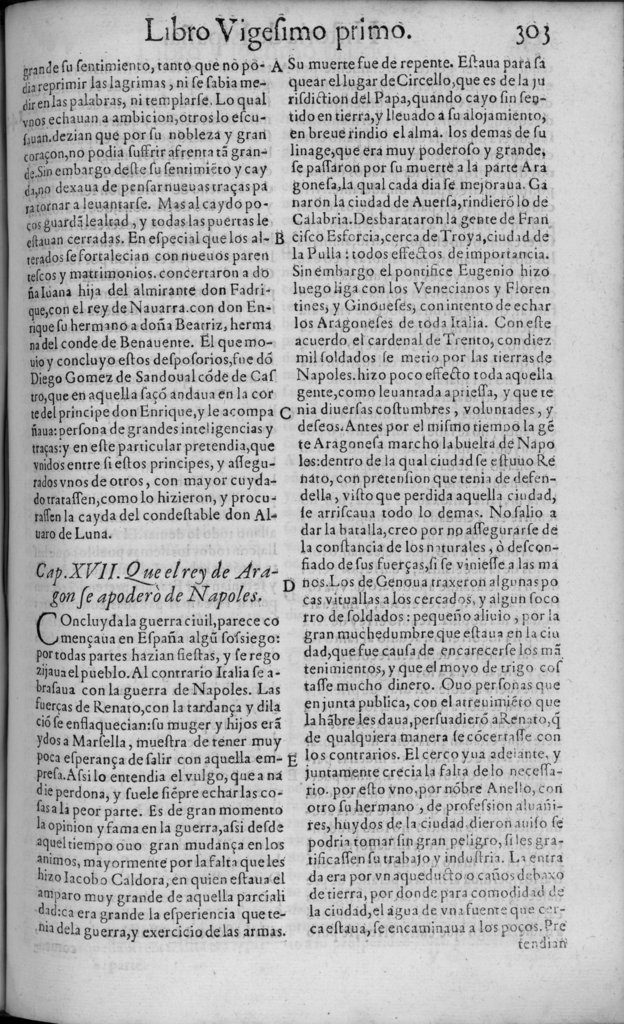 Libro Vigeſimo primo. 303
grande ſu ſentimiento, tanto que no po-
dia reprimir las lagrimas, ni ſe ſabia me-
dir en las palabras, ni templarſe. Lo qual
vnos echauan a ambicion, otros lo eſcu-
ſauan. dezian que por ſu nobleza y gran
coraçon, no podia ſuffrir afrenta tã gran-
de. Sin embargo deſte ſu ſentimiẽto y cay
da, no dexaua de penſar nueuas traças pa
ra tornar a leuantarſe. Mas al caydo po-
cos guardã lealtad, y todas las puertas le
eſtauan cerradas. En eſpecial que los al-
terados ſe fortalecian con nueuos paren
teſcos y matrimonios. concertaron a do
ña Iuana hija del almirante don Fadri-
que, con el rey de Nauarra. con don En-
rique ſu hermano a doña Beatriz, herma
na del conde de Benauente. El que mo-
uio y concluyo eſtos deſpoſorios, fue dõ
Diego Gomez de Sandoual cõde de Caſ
tro, que en aquella ſaçõ andaua en la cor
te del principe don Enrique, y le acompa
ñaua: perſona de grandes inteligencias y
traças: y en eſte particular pretendia, que
vnidos entre ſi eſtos principes, y aſſegu-
rados vnos de otros, con mayor cuyda-
do trataſſen, como lo hizieron, y procu-
raſſen la cayda del condeſtable don Al-
uaro de Luna.
Cap. XVII. Que el rey de Ara-
gon ſe apoderò de Napoles.
COncluyda la guerra ciuil, parece co
mençaua en Eſpaña algũ ſoſsiego:
por todas partes hazian fieſtas, y ſe rego
zijaua el pueblo. Al contrario Italia ſe a-
braſaua con la guerra de Napoles. Las
fuerças de Renato, con la tardança y dila
ciõ ſe enflaquecian: ſu muger y hijos erã
ydos a Marſella, mueſtra de tener muy
poca eſperança de ſalir con aquella em-
preſa. Aſsi lo entendia el vulgo, que a na
die perdona, y ſuele ſiẽpre echar las co-
ſas a la peor parte. Es de gran momento
la opinion y fama en la guerra, aſsi deſde
aquel tiempo ouo gran mudança en los
animos, mayormente por la falta que les
hizo Iacobo Caldora, en quien eſtaua el
amparo muy grande de aquella parciali
dad: ca era grande la eſperiencia que te-
nia de la guerra, y exercicio de las armas.
A Su muerte fue de repente. Eſtaua para ſa
quear el lugar de Circello, que es de la ju
riſdiction del Papa, quando cayo ſin ſen-
tido en tierra, y lleuado a ſu alojamiento,
en breue rindio el alma. los demas de ſu
linage, que era muy poderoſo y grande,
ſe paſſaron por ſu muerte a la parte Ara
goneſa, la qual cada dia ſe mejoraua. Ga
naron la ciudad de Auerſa, rindierõ lo de
Calabria. Desbarataron la gente de Fran
B ciſco Esforcia, cerca de Troya, ciudad de
la Pulla: todos effectos de importancia.
Sin embargo el pontifice Eugenio hizo
luego liga con los Venecianos y Floren
tines, y Ginoueſes, con intento de echar
los Aragoneſes de toda Italia. Con eſte
acuerdo el cardenal de Trento, con diez
mil ſoldados ſe metio por las tierras de
Napoles. hizo poco effecto toda aquella
gente, como leuantada aprieſſa, y que te
C nia diuerſas coſtumbres, voluntades, y
deſeos. Antes por el miſmo tiempo la gẽ
te Aragoneſa marcho la buelta de Napo
les: dentro de la qual ciudad ſe eſtuuo Re
nato, con pretenſion que tenia de defen-
della, viſto que perdida aquella ciudad,
ſe arriſcaua todo lo demas. No ſalio a
dar la batalla, creo por no aſſegurarſe de
la conſtancia de los naturales, ò deſcon-
fiado de ſus fuerças, ſi ſe vinieſſe a las ma
D nos. Los de Genoua traxeron algunas po
cas vituallas a los cercados, y algun ſoco
rro de ſoldados: pequeño aliuio, por la
gran muchedumbre que eſtaua en la ciu
dad, que fue cauſa de encarecerſe los mã
tenimientos, y que el moyo de trigo coſ
taſſe mucho dinero. Ouo perſonas que
en junta publica, con el atreuimiẽto que
la hãbre les daua, perſuadierõ a Renato, q̃
de qualquiera manera ſe cõcertaſſe con
E los contrarios. El cerco yua adelante, y
juntamente crecia la falta de lo neceſſa-
rio. por eſto vno, por nõbre Anello, con
otro ſu hermano, de profeſsion aluañi-
res, huydos de la ciudad dieron auiſo ſe
podria tomar ſin gran peligro, ſi les gra-
tificaſſen ſu trabajo y induſtria. La entra
da era por vn aqueducto o caños debaxo
de tierra, por donde para comodidad de
la ciudad, el agua de vna fuente que cer-
ca eſtaua, ſe encaminaua a los poços. Pre
tendian